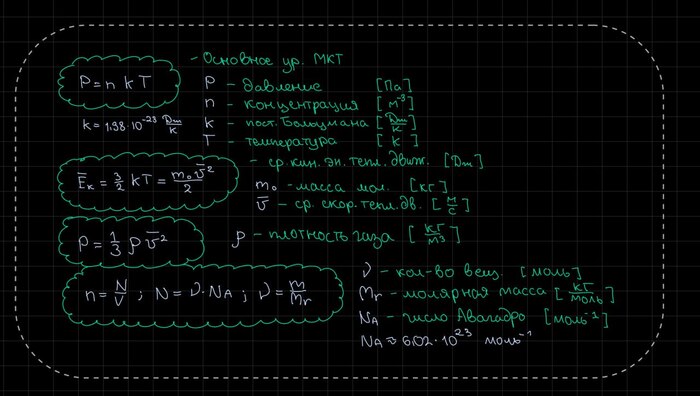 - Основное ур. МКТ
P = n k T
P - давление [Па]
n - концентрация [м⁻³]
k = 1.38·10⁻²³ Дж/К
k - пост. Больцмана [Дж/К]
T - температура [К]
Ēₖ = 3/2 kT = m₀v̄²/2
- ср. кин. эн. тепл. движ. [Дж]
m₀ - масса мол. [кг]
v̄ - ср. скор. тепл. дв. [м/с]
P = 1/3 ρ v̄²
ρ - плотность газа [кг/м³]
n = N/V ; N = ν·Nᴀ ; ν = m/Mr
ν - кол-во вещ. [моль]
Mr - молярная масса [кг/моль]
Nᴀ - число Авагадро [моль⁻¹]
Nᴀ ≈ 6,02·10²³ моль⁻¹